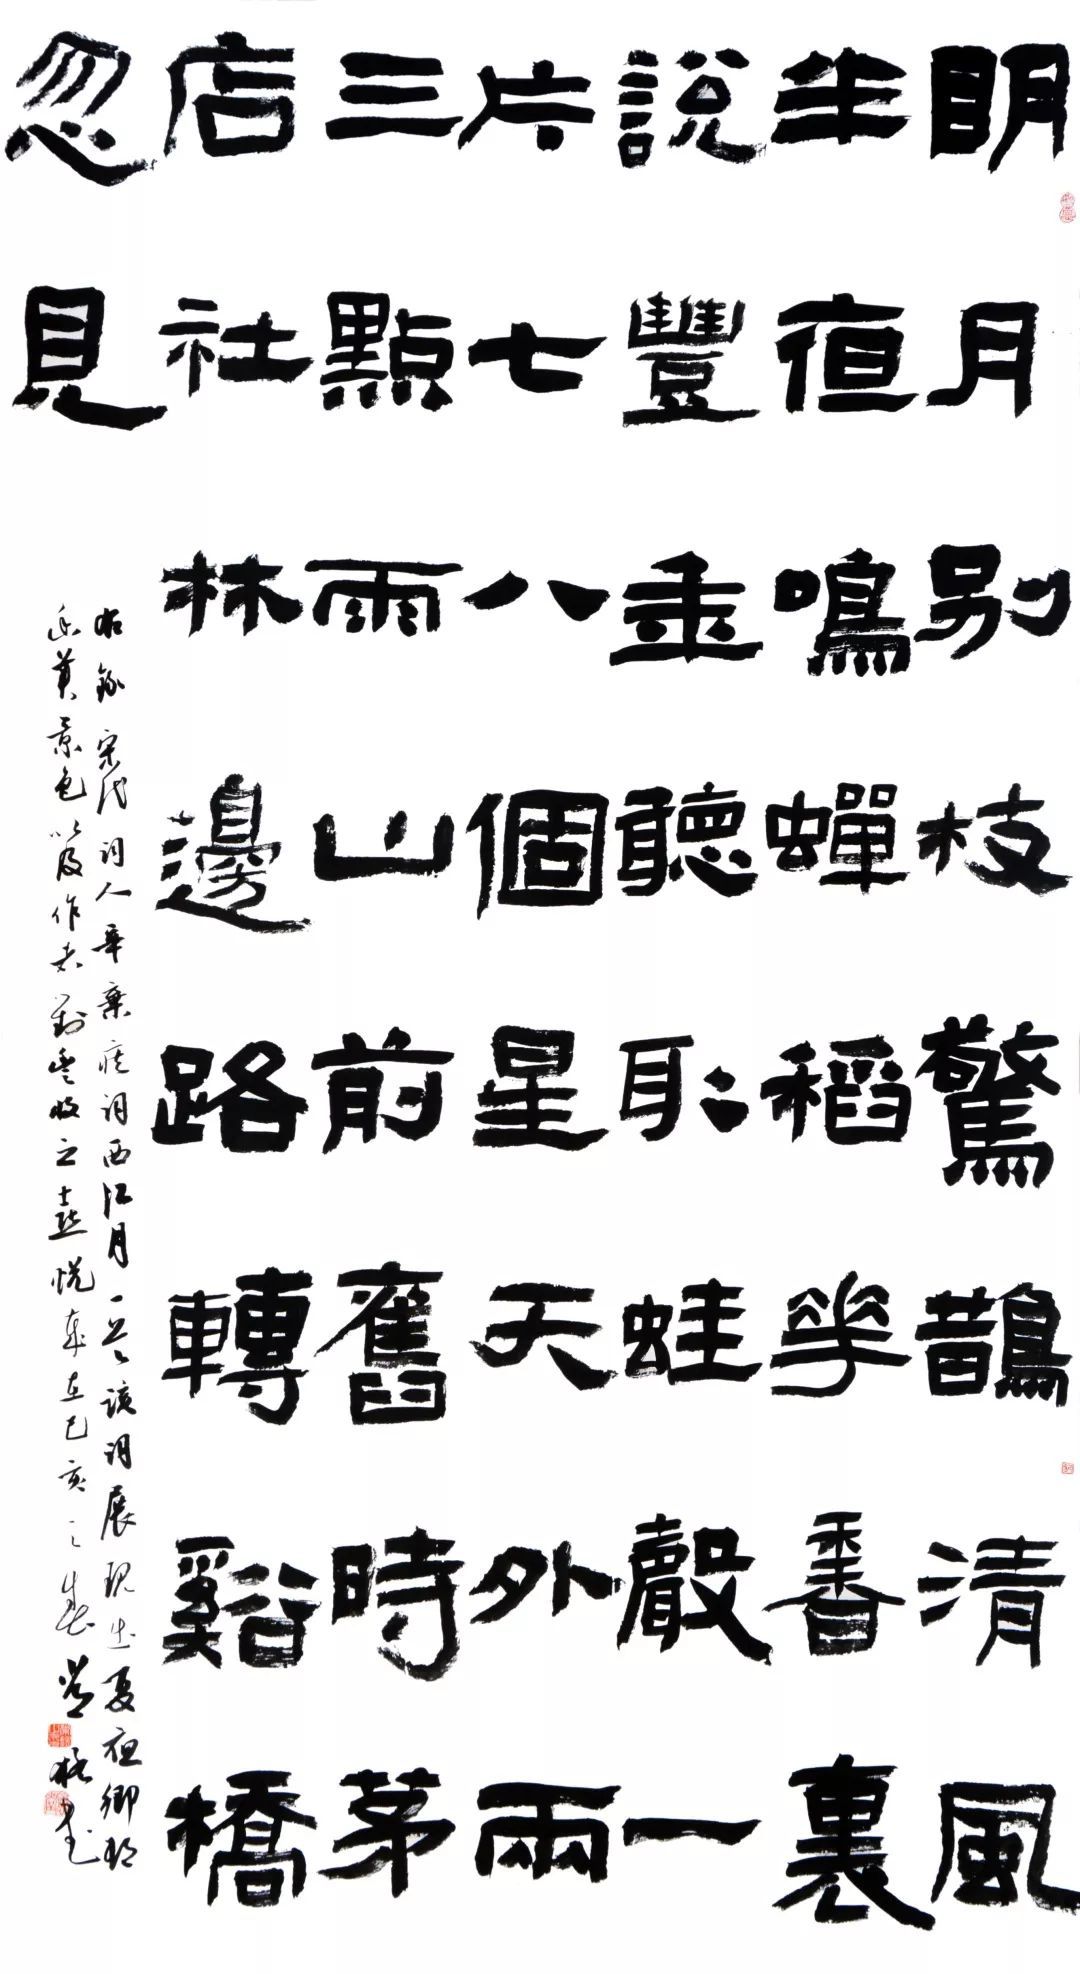 明月別枝驚鵲清風
半夜鳴蟬稻花香裏
說豐年聽取蛙聲一
片七八個星天外兩
三點雨山前舊時茅
店社林邊路轉谿橋
忽見
右錄宋代詞人辛棄疾詞西江月一首該詞展現出夏夜鄉村
幽美景色以及作者對豐收之喜悅歲在己亥之春書